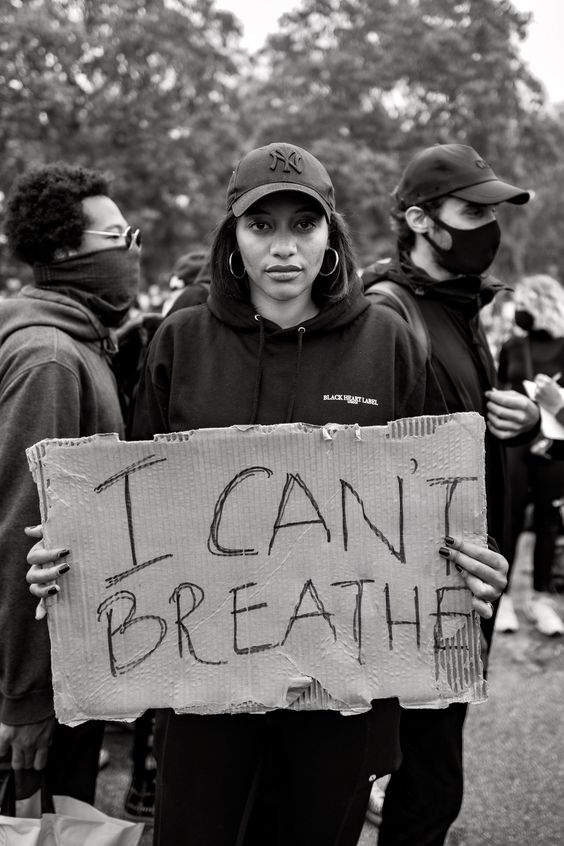 NY
BLACK HEART LABEL
I CAN'T
BREATHE